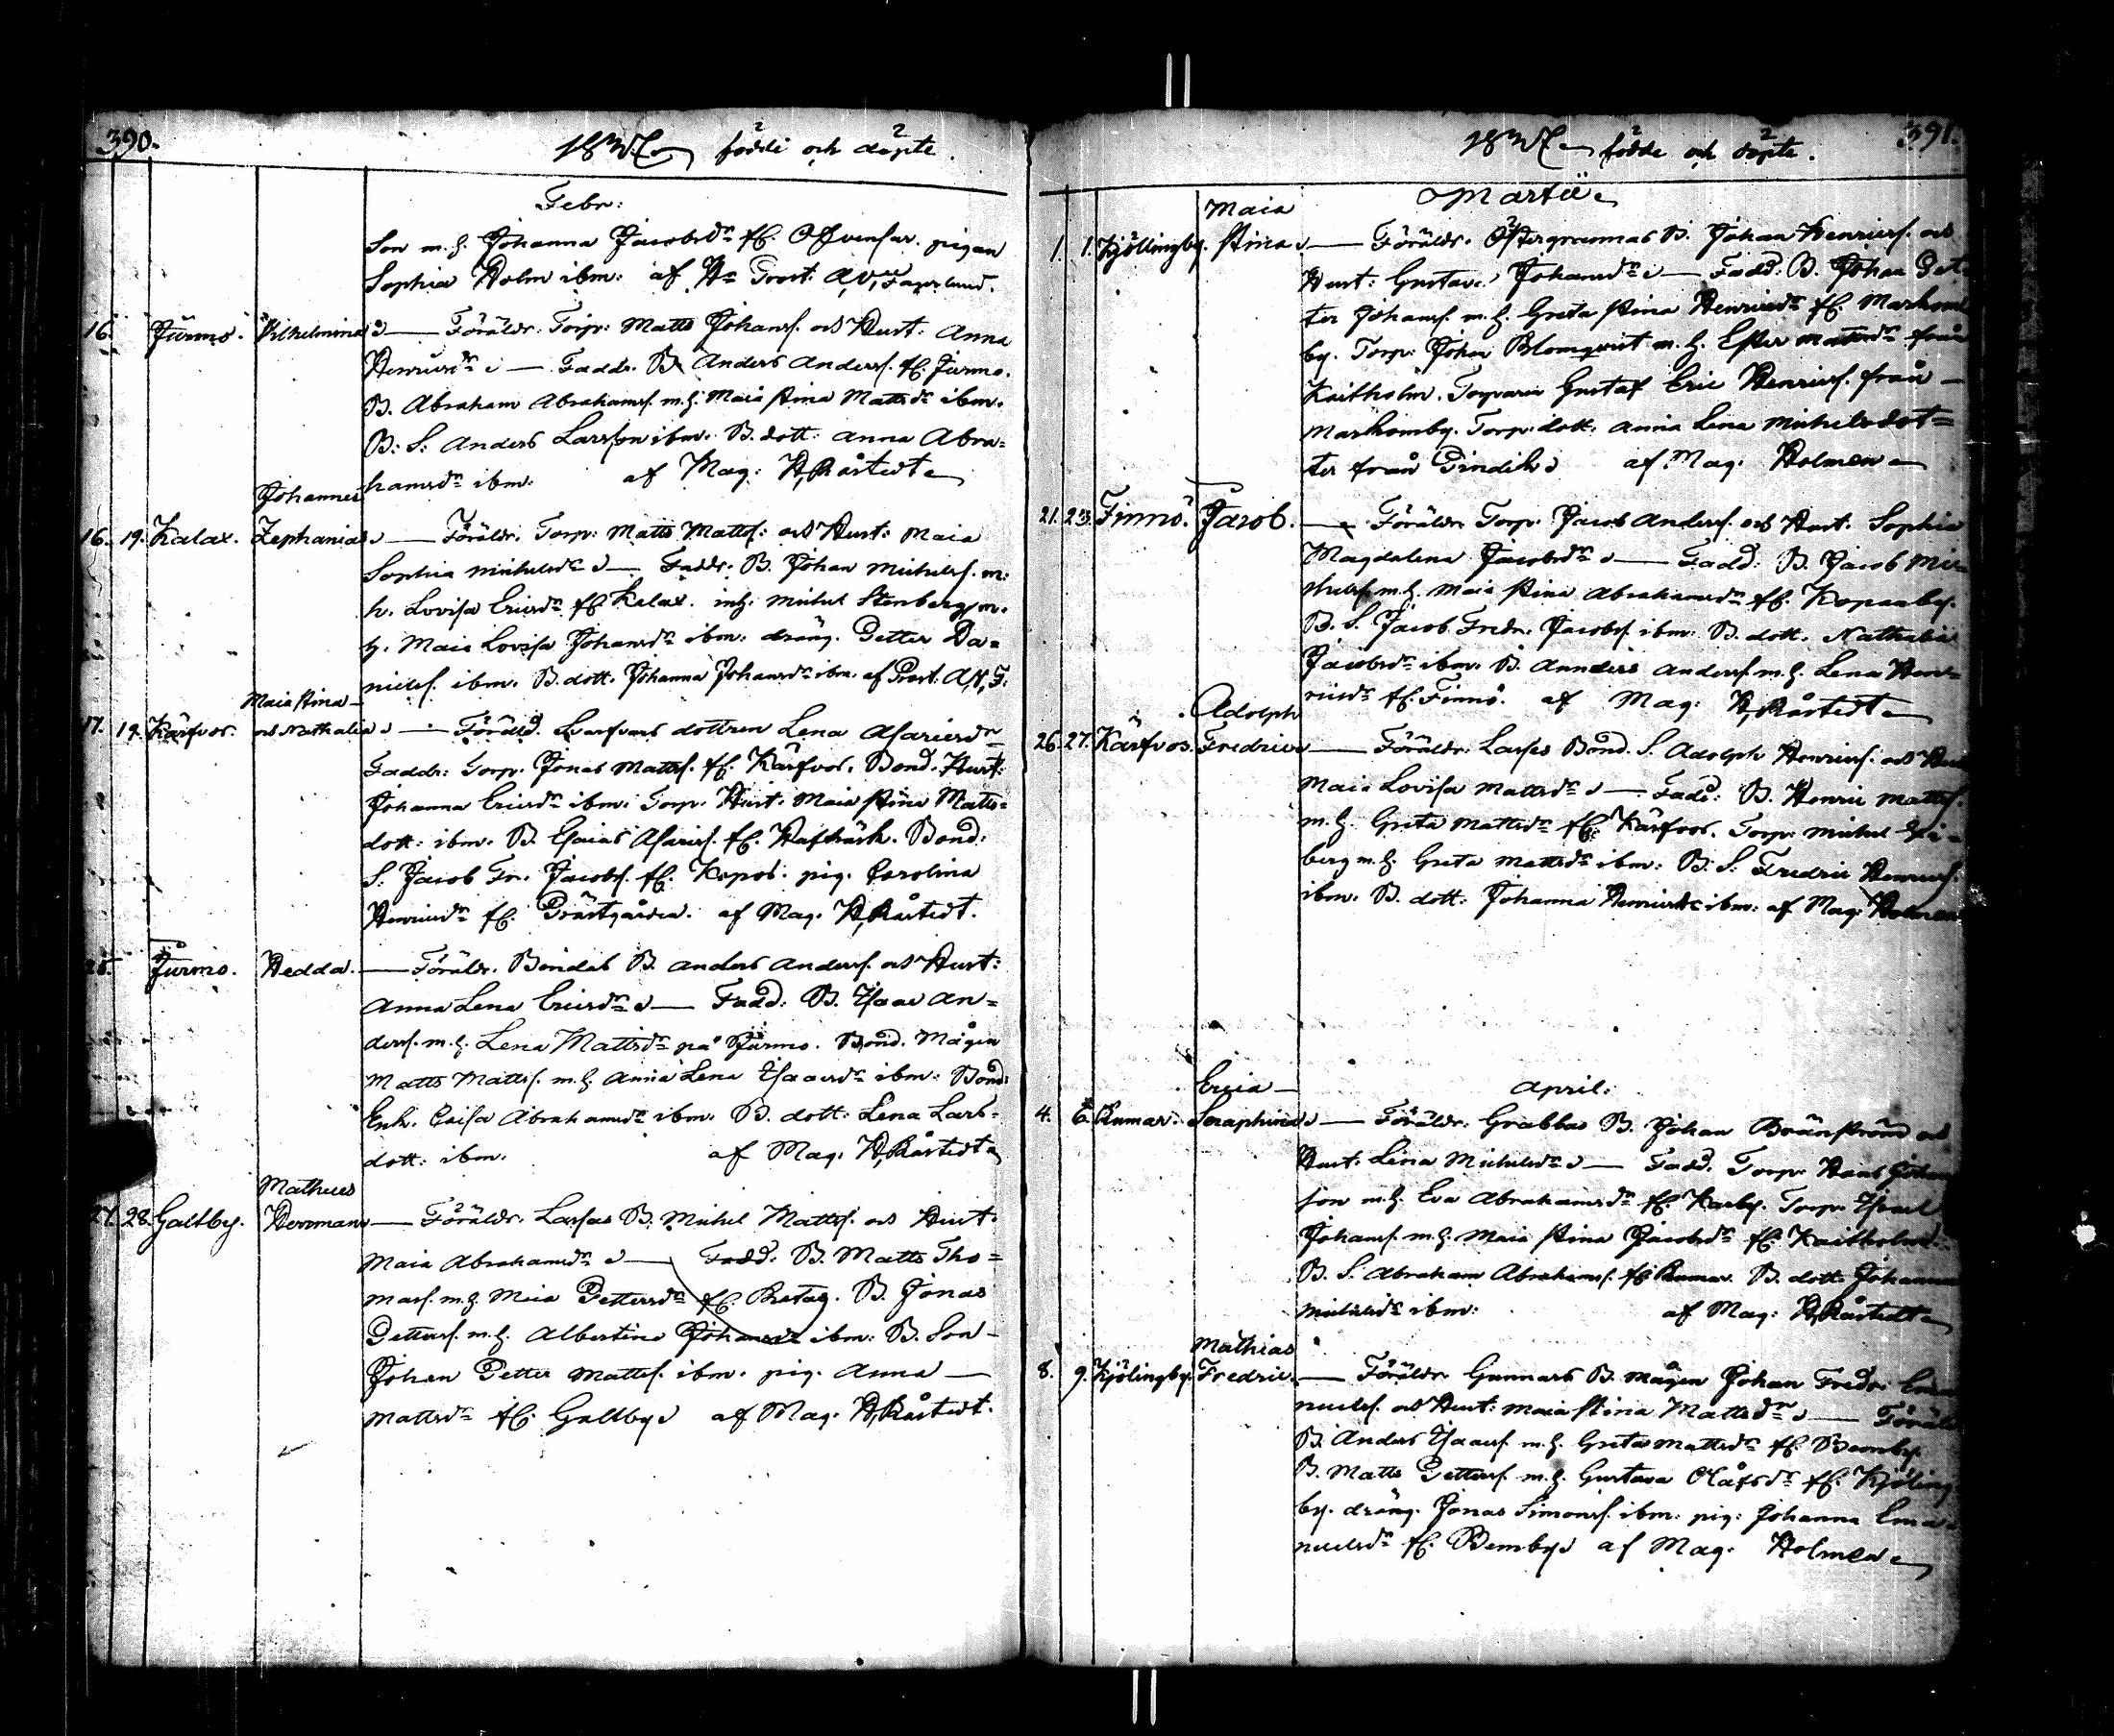 390.
födde och döpte.
Febr:
Son m. h. Johanna Jacobsdr fr. Offvensar. pigan
Sophia Holm ibm: af Hr Prost.
16. Jurmo. Vilhelmina — Föräldr: Torp: Matts Johans. och Hust: Anna
Henricsdr — Faddr. B. Anders Anderss. fr. Jurmo.
B. Abraham Abrahams. m. h. Maia Stina Mattsdr ibm.
B: S: Anders Larsson ibm. B. dott: Anna Abra=
hamsdr ibm: af Mag: Råstedt
Johannes
16. 19. Kalax. Zephanias — Föräldr. Torp: Matts Mattss: och Hust: Maia
Sophia Michelsdr — Faddr. B. Johan Michels. m:
h. Lovisa Ericsdr fr Kalax. inh: Michel Stenberg m.
h. Maia Lovisa Johansdr ibm: dräng. Petter Da=
niels. ibm. B. dott. Johanna Johansdr ibm. af Prost.
Maia Stina
17. 19. Kärfvos. och Nathalia — Föräld. dottren Lena Asariesdr
Faddr: Torp. Jonas Mattss. fr. Kärfvos. Bond. Hust:
Johanna Ericsdr ibm. Torp. Hust. Maia Stina Matts=
dott: ibm. B. Esaias Asaries. fr. Bond:
S. Jacob Fr. Jacobs. fr. Kopob. pig. Carolina
Henricsdr fr. Prästgården. af Mag. Råstedt.
Jurmo. Hedda. — Föräldr. Bondas B. Anders Anderss. och Hust:
Anna Lena Ericsdr — Fadd: B. Isaac An=
derss. m. h. Lena Mattsdr på Jurmo. Bond. Mågen
Matts Mattss. m. h. Anna Lena Isaacsdr ibm: Bond:
Enk. Caisa Abrahamsdr ibm. B. dott: Lena Lars=
dott: ibm. af Mag. Råstedt
Matheus
27. 28. Galtby. Herrman — Föräldr. Larsas B. Michel Mattss. och Hust.
Maia Abrahamsdr — Fadd. B. Matts Tho=
mass. m. h. Maia Pettersdr fr. B. Jonas
Petterss. m. h. Albertina Johansdr ibm: B. Son
Johan Petter Mattss. ibm. pig. Anna —
Mattsdr fr. Galtby af Mag. Råstedt.
födde och döpte.
391.
Martii
Maia
1. 1. Kjöllingby. Stina — Föräldr. Östergrannas B. Johan Henrics. och
Hust: Gustava Johansdr — Fadd. B. Johan Pet
ter Johans. m. h. Greta Stina Henricsdr fr. Markom
by. Torp: Johan Blomqvist m. h. Ester Mattsdr från
Kaitholm. Torparen Gustaf Eric Henrics. från —
Markomby. Torp: dott: Anna Lena Michelsdot=
ter från af Mag. Holmen
21. 23. Finnö. Jacob. — Föräldr. Torp. Jacob Anderss. och Hust. Sophia
Magdalena Jacobsdr — Fadd: B. Jacob Mi
chels. m. h. Maia Stina Abrahamsdr fr. Kopanby.
B. S. Jacob Fredr. Jacobs. ibm: B. dott. Nathalia
Jacobsdr ibm. B. Anders Anderss. m. h. Lena Hen=
ricsdr fr. Finnö. af Mag: Råstedt
Adolph
26. 27. Kärfvos. Fredric — Föräldr: Larses Bond. S. Adolph Henrics. och Hust
Maia Lovisa Mattsdr — Fadd: B. Henric Mattss.
m. h. Greta Mattsdr fr. Kärfvos. Torp: Michel
berg m. h. Greta Mattsdr ibm: B. S: Fredric Henrics.
ibm. B. dott. Johanna Henricsdr ibm: af Mag: Holmen
April:
Erica
4. 6. Rumar. Seraphina — Föräldr: Grabbas B. Johan Bränström och
Hust. Lena Michelsdr — Fadd. Torp. Johans
son m. h. Eva Abrahamsdr fr. Karby. Torp. Israel
Johans. m. h. Maia Stina Jacobsdr fr. Kaitholm.
B. S. Abraham Abrahams. fr. Rumar. B. dott. Johanna
Michelsdr ibm: af Mag: Råstedt
Mathias
8. 9. Kjölingby. Fredric. — Föräldr. Gunnars B. mågen Johan Fredr. Ema
nuels. och Hust: Maia Stina Mattsdr — Föräldr
B. Anders Isaacs. m. h. Greta Mattsdr fr. Bemby.
B. Matts Petterss. m. h. Gustava Olåfsdr fr. Kjöling
by. dräng. Jonas Simons. ibm: pig: Johanna Ema
nuelsdr fr. Bemby af Mag. Holmen